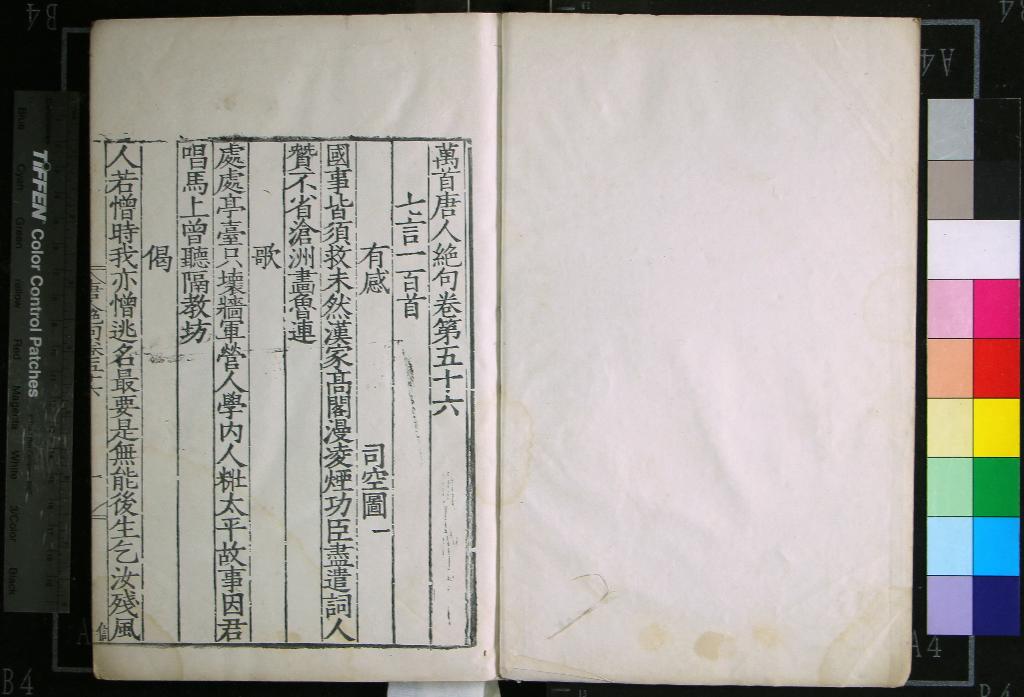 萬首唐人絕句卷第五十六
七言一百首
有感 司空圖一
國事皆須救未然漢家高閣漫凌煙功臣盡遣詞人
贊不省滄洲畫魯連
歌
處處亭臺只壞牆軍營人學內人粧太平故事因君
唱馬上曾聽隔教坊
偈
人若憎時我亦憎逃名最要是無能後生乞汝殘風
TIFFEN Color Control Patches
Blue
Cyan
Green
Yellow
Red
Magenta
White
3/Color
Black
B4
A4
A4
B4
B4